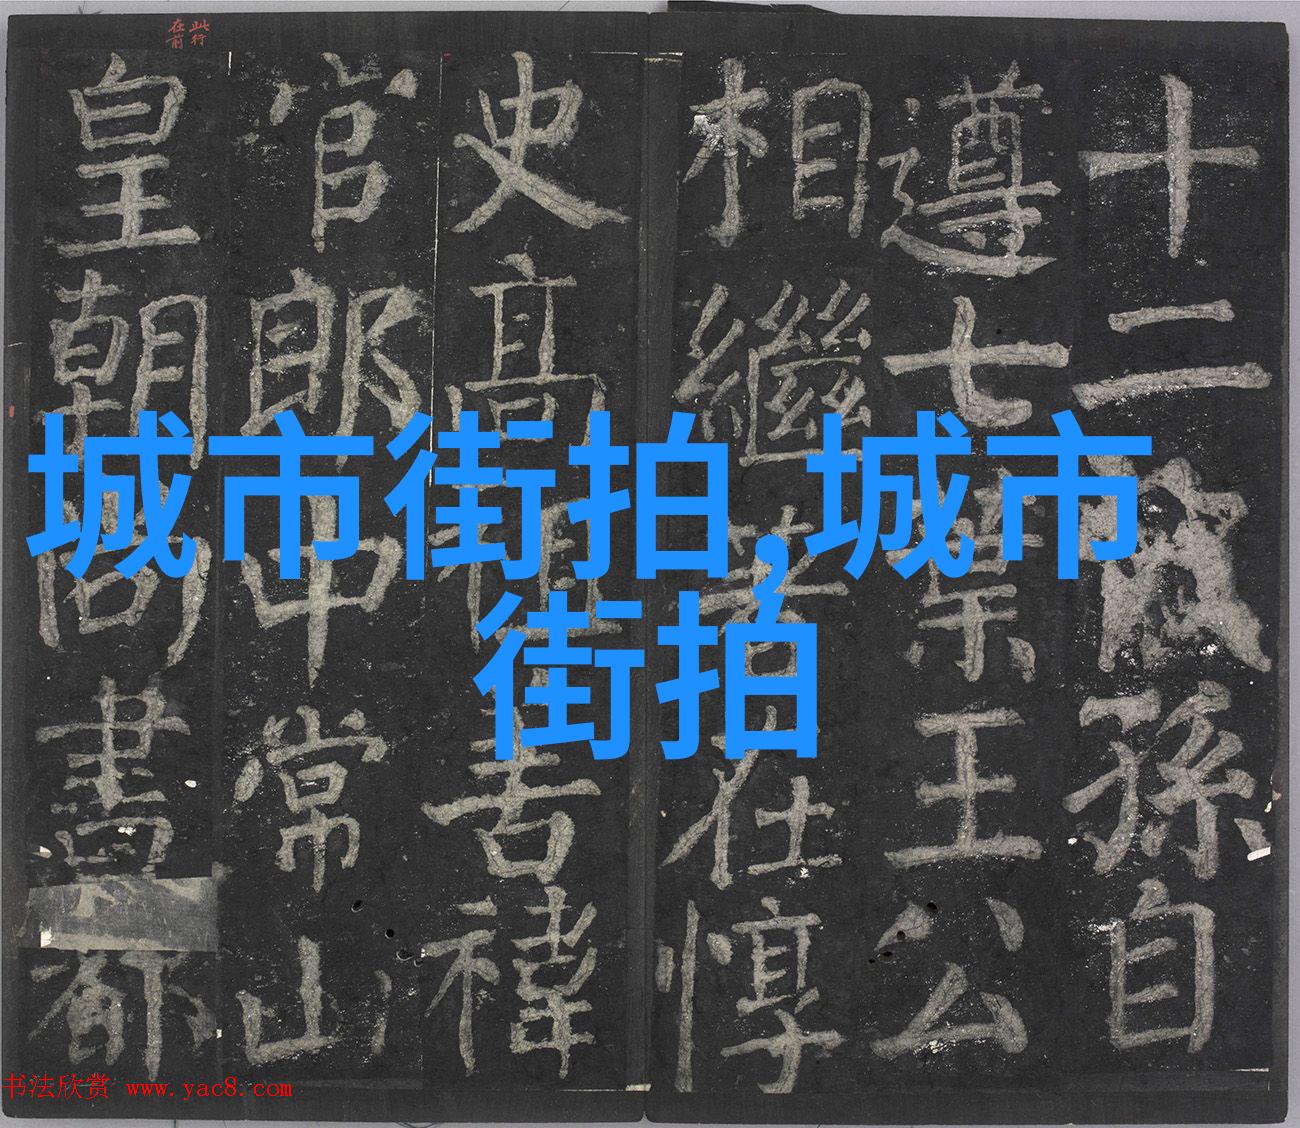 此行
在前
十二孫自
遵七葉王公
相繼著在惇
史高祖吉禕
官郎中常山
皇朝尚書都
城市街拍,城市
街拍
书法欣赏 www.yac8.com